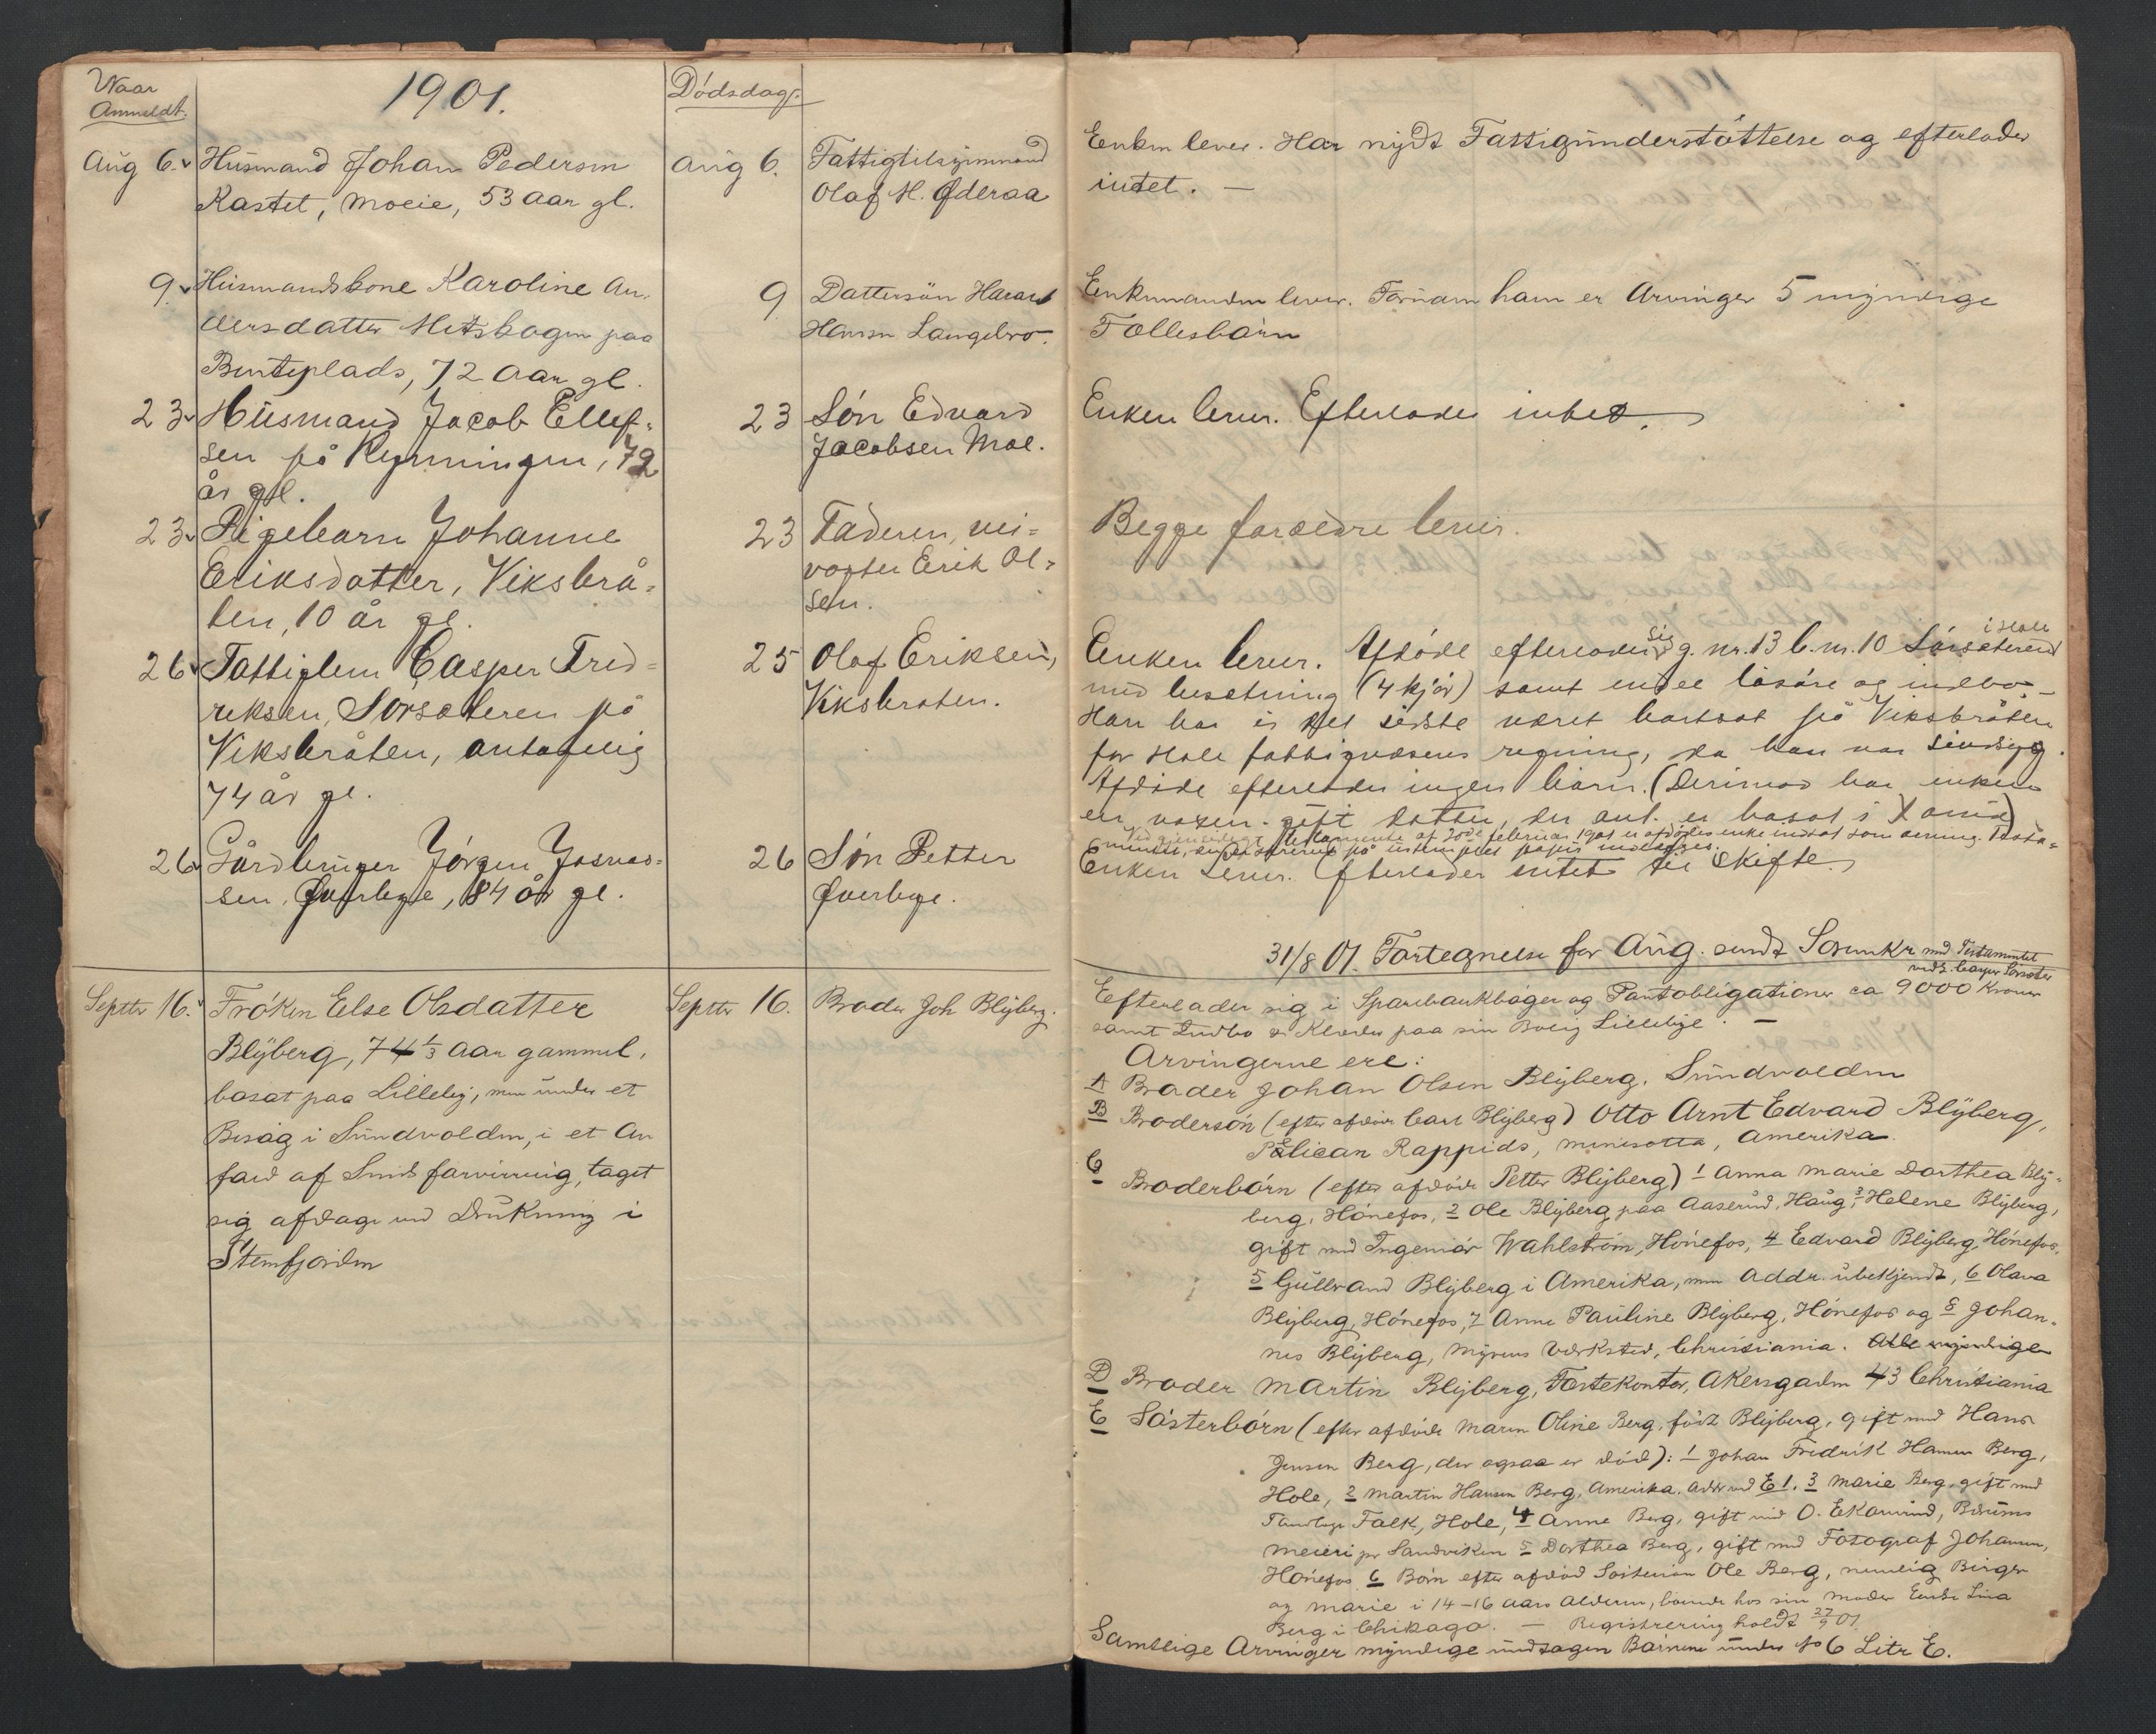 Naar
Anmeldt.
1901.
Dödsdag.
Aug 6. Husmand Johan Pedersen
Kastet, Moeie, 53 Aar gl.
Aug 6. Fattigtilsynsmand
Olaf H. Øderaa
Enken lever. Har nydt Fattigunderstöttelse og efterlader
intet. —
9. Husmandskone Karoline An-
dersdatter paa
Benteplads, 72 Aar gl.
9 Dattersön Harald
Hansen Langebro.
Enkemanden lever. Foruden ham er Arvinger 5 myndige
Fællesbörn
23 Husmand Jacob Ellef-
sen på Rynningen, 72
år gl.
23 Sön Edvard
Jacobsen Moe.
Enken lever. Efterlader intet.
23 Pigebarn Johanne
Eriksdatter, Viksbrå-
ten, 10 år gl.
23 Faderen, vei-
vogter Erik Ol-
sen.
Begge forældre lever.
26 Fattiglem Casper Fred-
reksen, Sörsæteren på
Viksbråten, antagelig
74 år gl.
25 Olaf Eriksen,
Viksbraten.
Enken lever. Afdöde efterlader sig g. nr. 13 b. nr. 10 Sörsæteren i Hole
med besetning (4 kjör) samt endel lösöre og indbo. —
Han har i det sidste været bortsat på Viksbråten
for Hole fattigvæsens regning, da han var sindsyg.
Afdöde efterlader ingen börn. (Derimod har enken
en voxen gift datter, der ant. er bosat i )
Ved gjensidigt testamente af 20de februar 1901 er afdödes enke indsat som arving. Testa-
mentet, på ustemplet papir indtages.
26 Gårdbruger Jörgen Josvas-
sen, Øverbye, 84 år gl.
26 Sön Petter
Øverbye.
Enken lever. Efterlader intet til Skifte.
31/8 01. Fortegnelse for Aug. sendt Sorenskr. med Testamentet
vedk. Casper Sörsæter
Septbr 16. Fröken Else Olsdatter
Blyberg, 74 1/3 Aar gammel,
bosat paa Lilleby, men under et
Besög i Sundvolden, i et An
fald af Sinds forvirring, taget
sig afdage ved Drukning i
Stensfjorden
Septbr 16. Broder Joh Blyberg.
Efterlader sig i Sparebankböger og Pantobligationer ca 9000 Kroner
samt Indbo & Klæder paa sin Bolig Lillebye. —
Arvingerne ere:
A Broder Johan Olsen Blyberg. Sundvolden
B Brodersön (efter afdöde Carl Blyberg) Otto Arnt Edvard Blyberg,
Pelican Rappids, Minisotta, Amerika.
C Broderbörn (efter afdöde Petter Blyberg) 1 Anna Marie Dorthea Bly-
berg, Hönefos, 2 Ole Blyberg paa Aaserud, Haug, 3 Helene Blyberg,
gift med Ingeniör Wahlström, Hönefos, 4 Edvard Blyberg, Hönefos,
5 Gullvand Blyberg i Amerika, men Addr. ubekjendt, 6 Olava
Blyberg, Hönefos, 7 Anne Pauline Blyberg, Hönefos og 8 Johan-
nes Blyberg, Myrens Værksted, Christiania. Alle myndige
D Broder Martin Blyberg, Fæstekontor, Akersgaden 43 Christiania
E Sösterbörn (efter afdöde Maren Oline Berg, född Blyberg, gift med Hans
Jensen Berg, der ogsaa er död): 1 Johan Fredrik Hansen Berg,
Hole, 2 Martin Hansen Berg, Amerika. Addr ved E 1. 3 Marie Berg, gift med
Falk, Hole, 4 Anne Berg, gift med O. Ekornrud, Bærums
Meieri pr Sandviken 5 Dorthea Berg, gift med Fotograf Johansen,
Hönefos 6 Börn efter afdöd Sösterson Ole Berg, nemlig Birger
og Marie i 14-16 Aars Alderen, boende hos sin Moder Enke Lina
Berg i Chikago. — Registrering holdt 27/9 01.
Samtlige Arvinger myndige undtagen Börnene under No 6 Litr E.